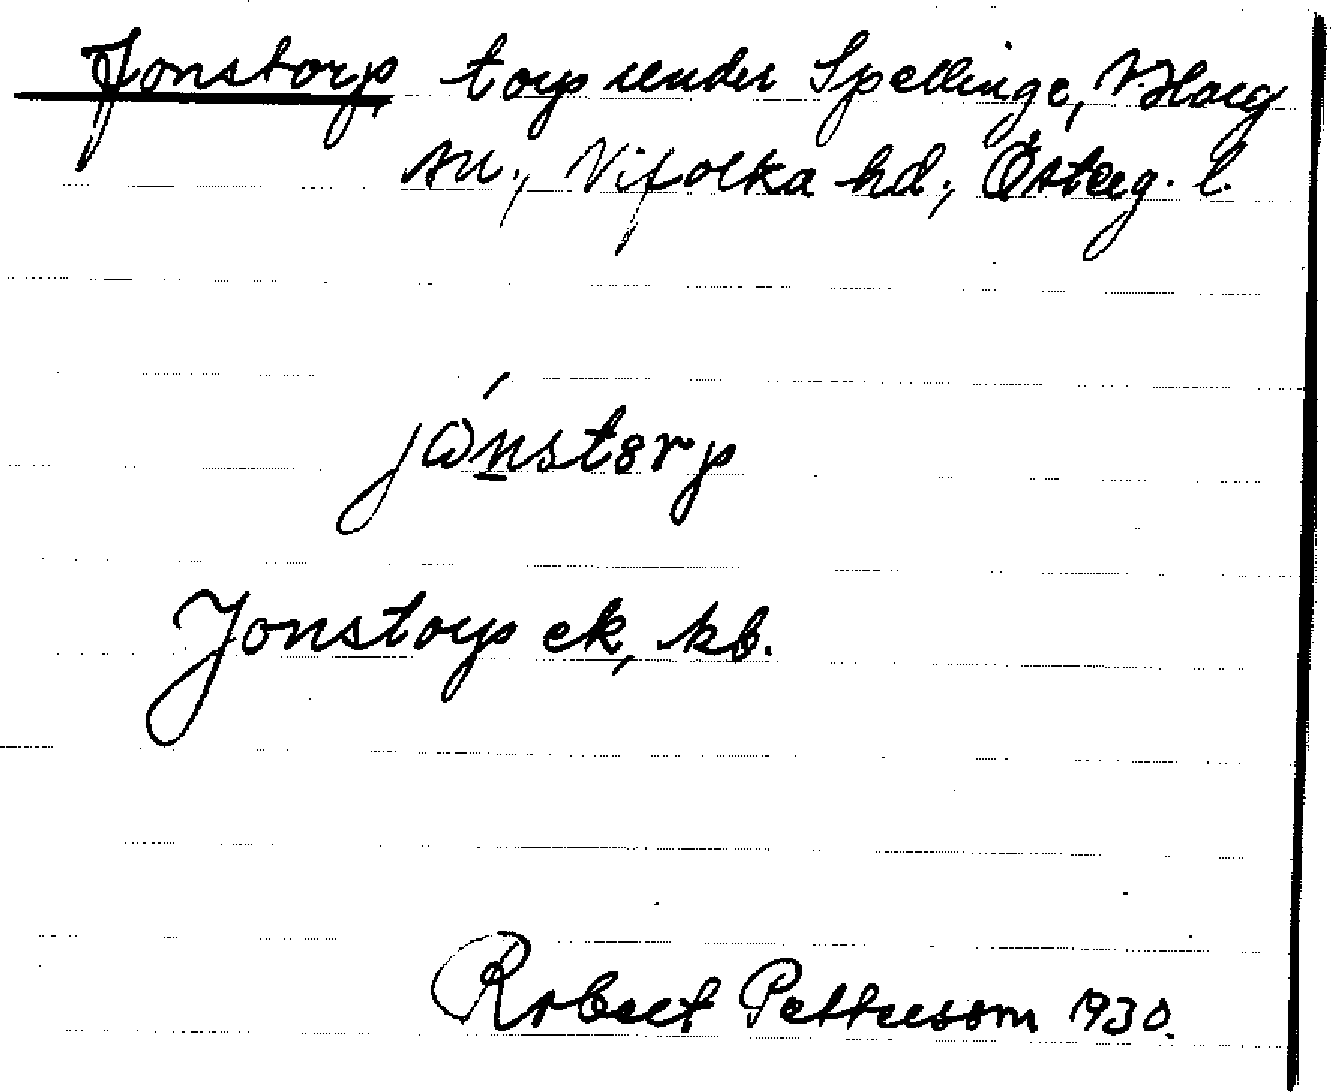 Jonstorp torp under Spellinge, V Harg
sn., Vifolka hd., Österg. l.
jώn̲st8rp
Jonstorp ek, kb.
Robert Pettersson 1930.